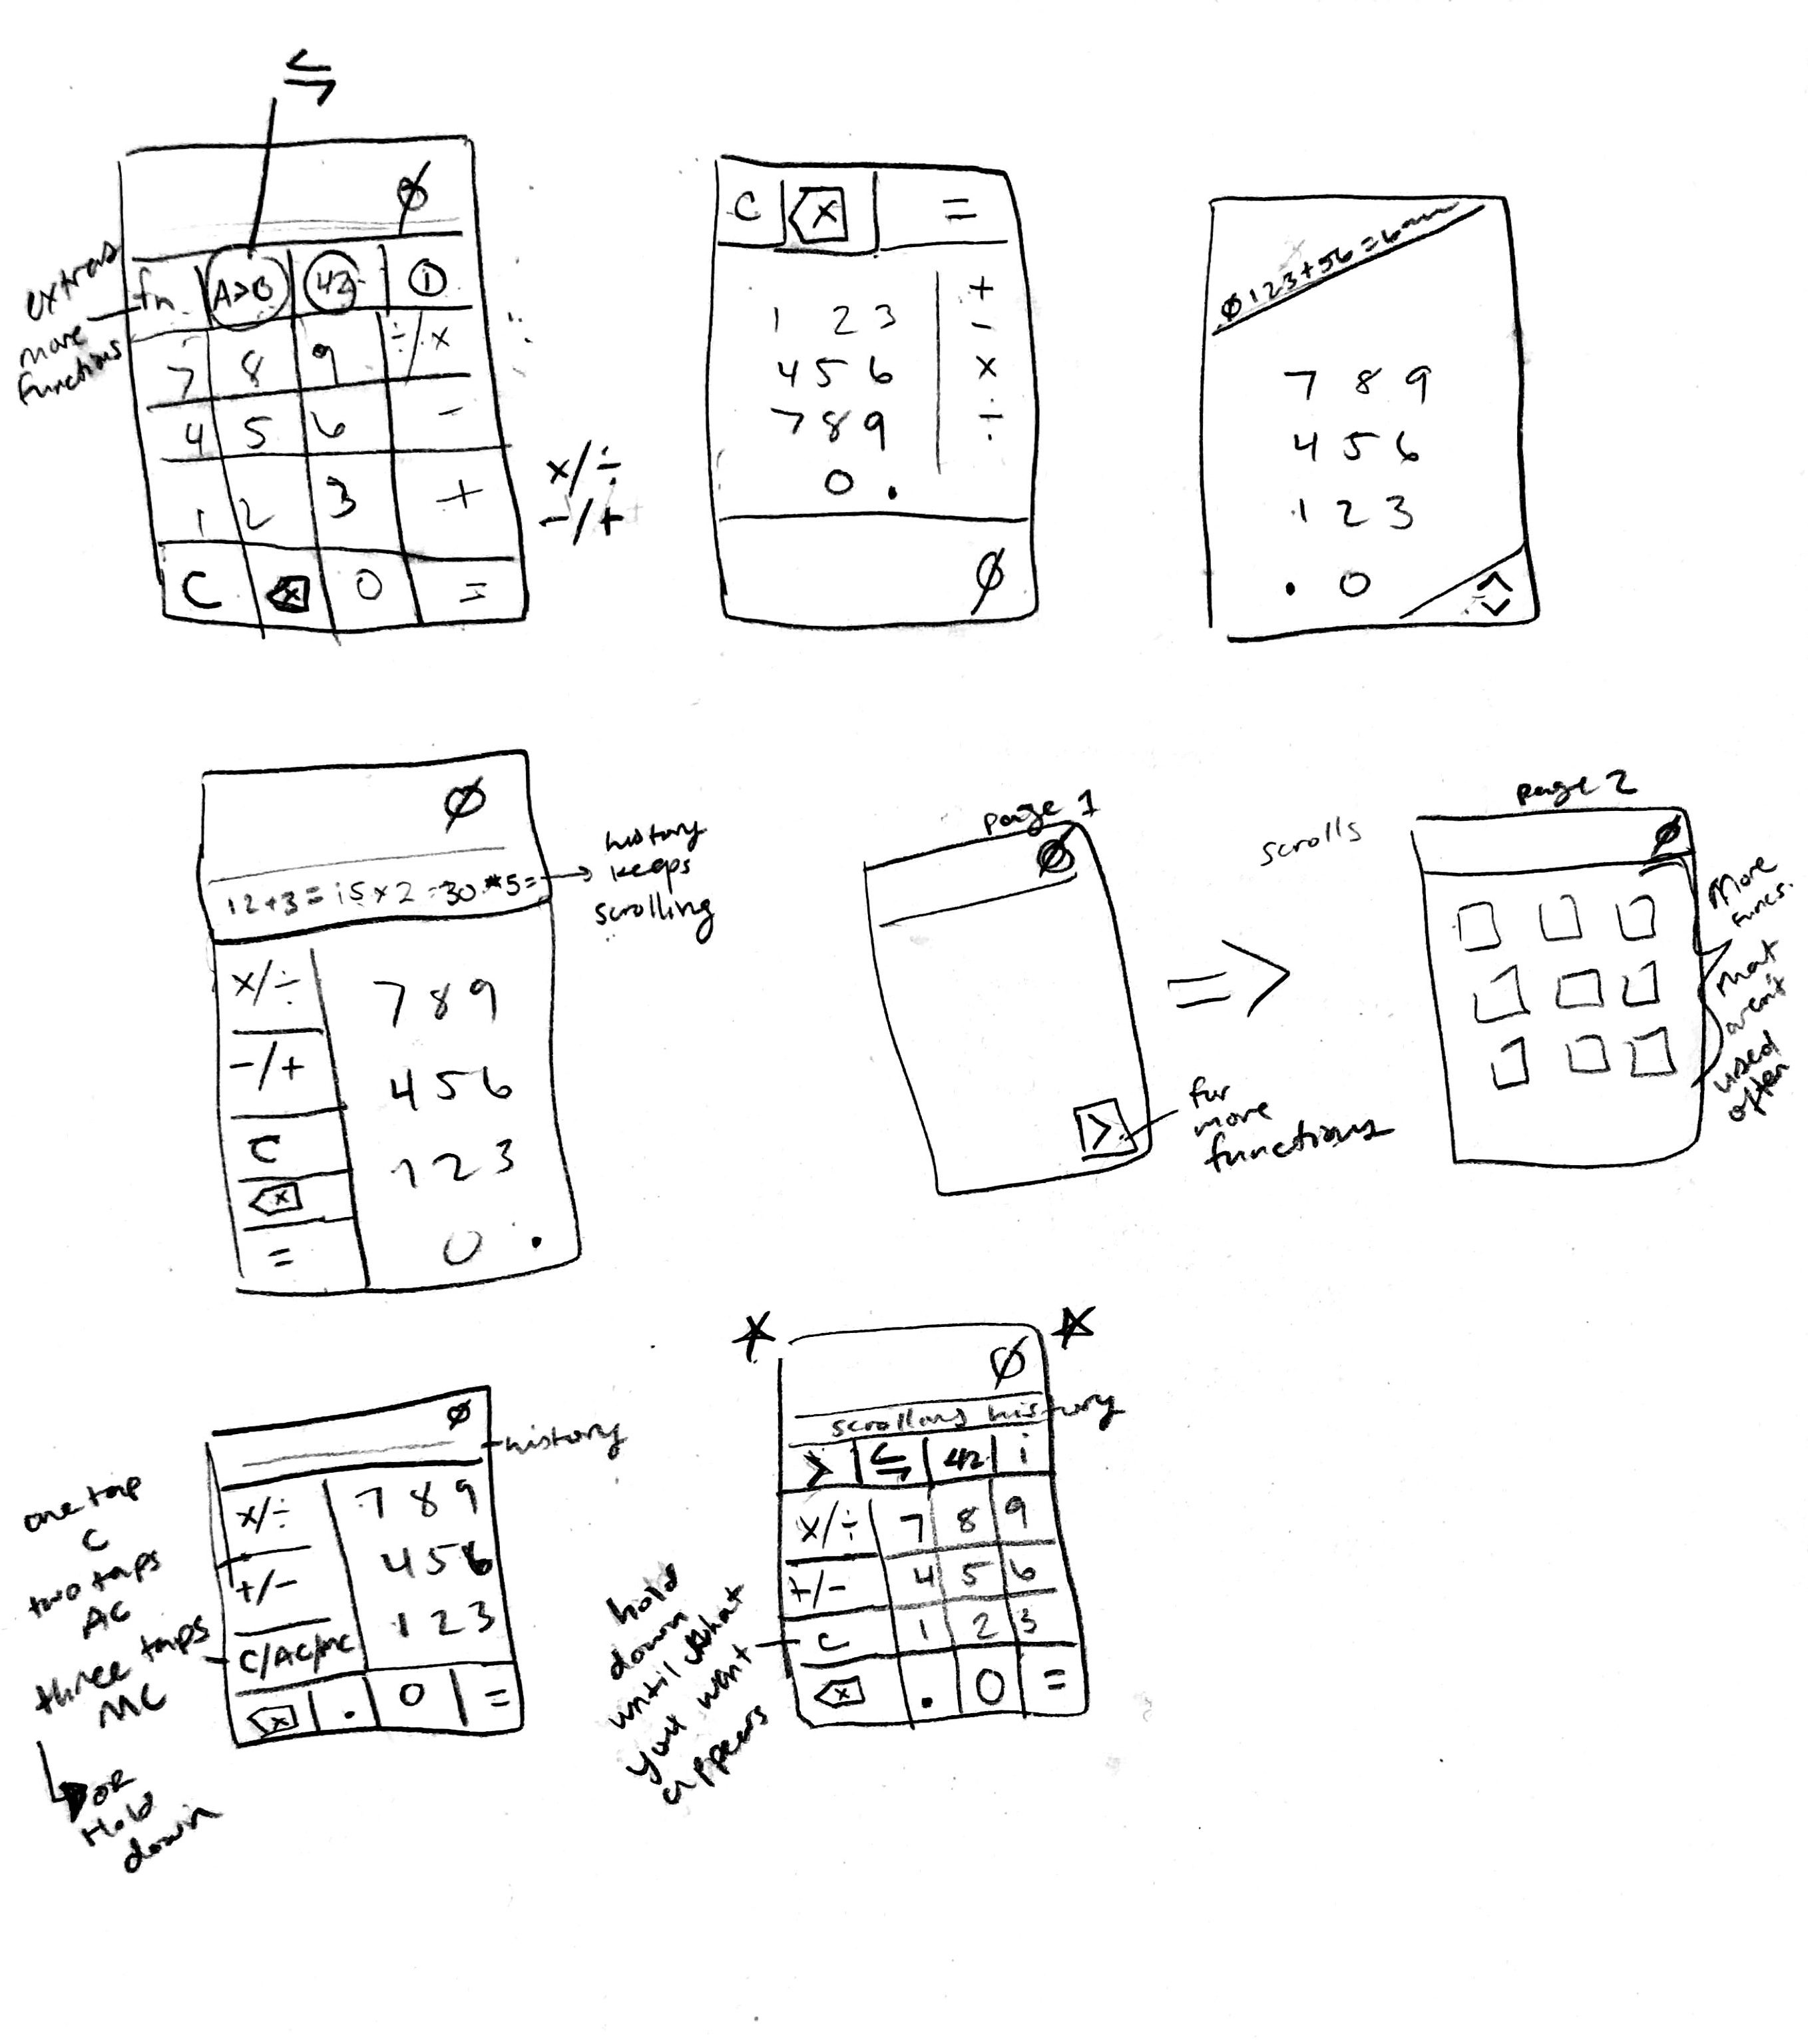 ⇆
Ø
extras
more
functions
fn A>B 42 i
7 8 9 ÷/×
4 5 6 -
1 2 3 +
C ⌫ 0 =
×/÷
-/+
C ⌫ =
1 2 3 +
-
4 5 6 ×
7 8 9 ÷
0 .
Ø
7 8 9
4 5 6
1 2 3
. 0
Ø
12+3=15×2=30*5=
history
keeps
scrolling
×/÷ 7 8 9
-/+ 4 5 6
C 1 2 3
⌫
= 0 .
page 1
Ø
>
for
more
functions
scrolls
=>
page 2
Ø
More
funcs.
that
arent
used
often
Ø
history
×/÷ 7 8 9
+/- 4 5 6
C/AC/MC 1 2 3
⌫ . 0 =
one tap
C
two taps
AC
three taps
MC
OR
Hold
down
Ø
scrolling history
> ⇆ 42 i
×/÷ 7 8 9
+/- 4 5 6
C 1 2 3
⌫ . 0 =
hold
down
until what
you want
appears